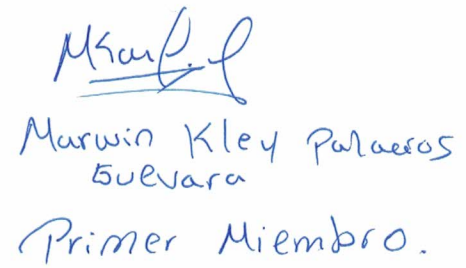 Marwin Kley Palacios
Guevara
Primer Miembro.